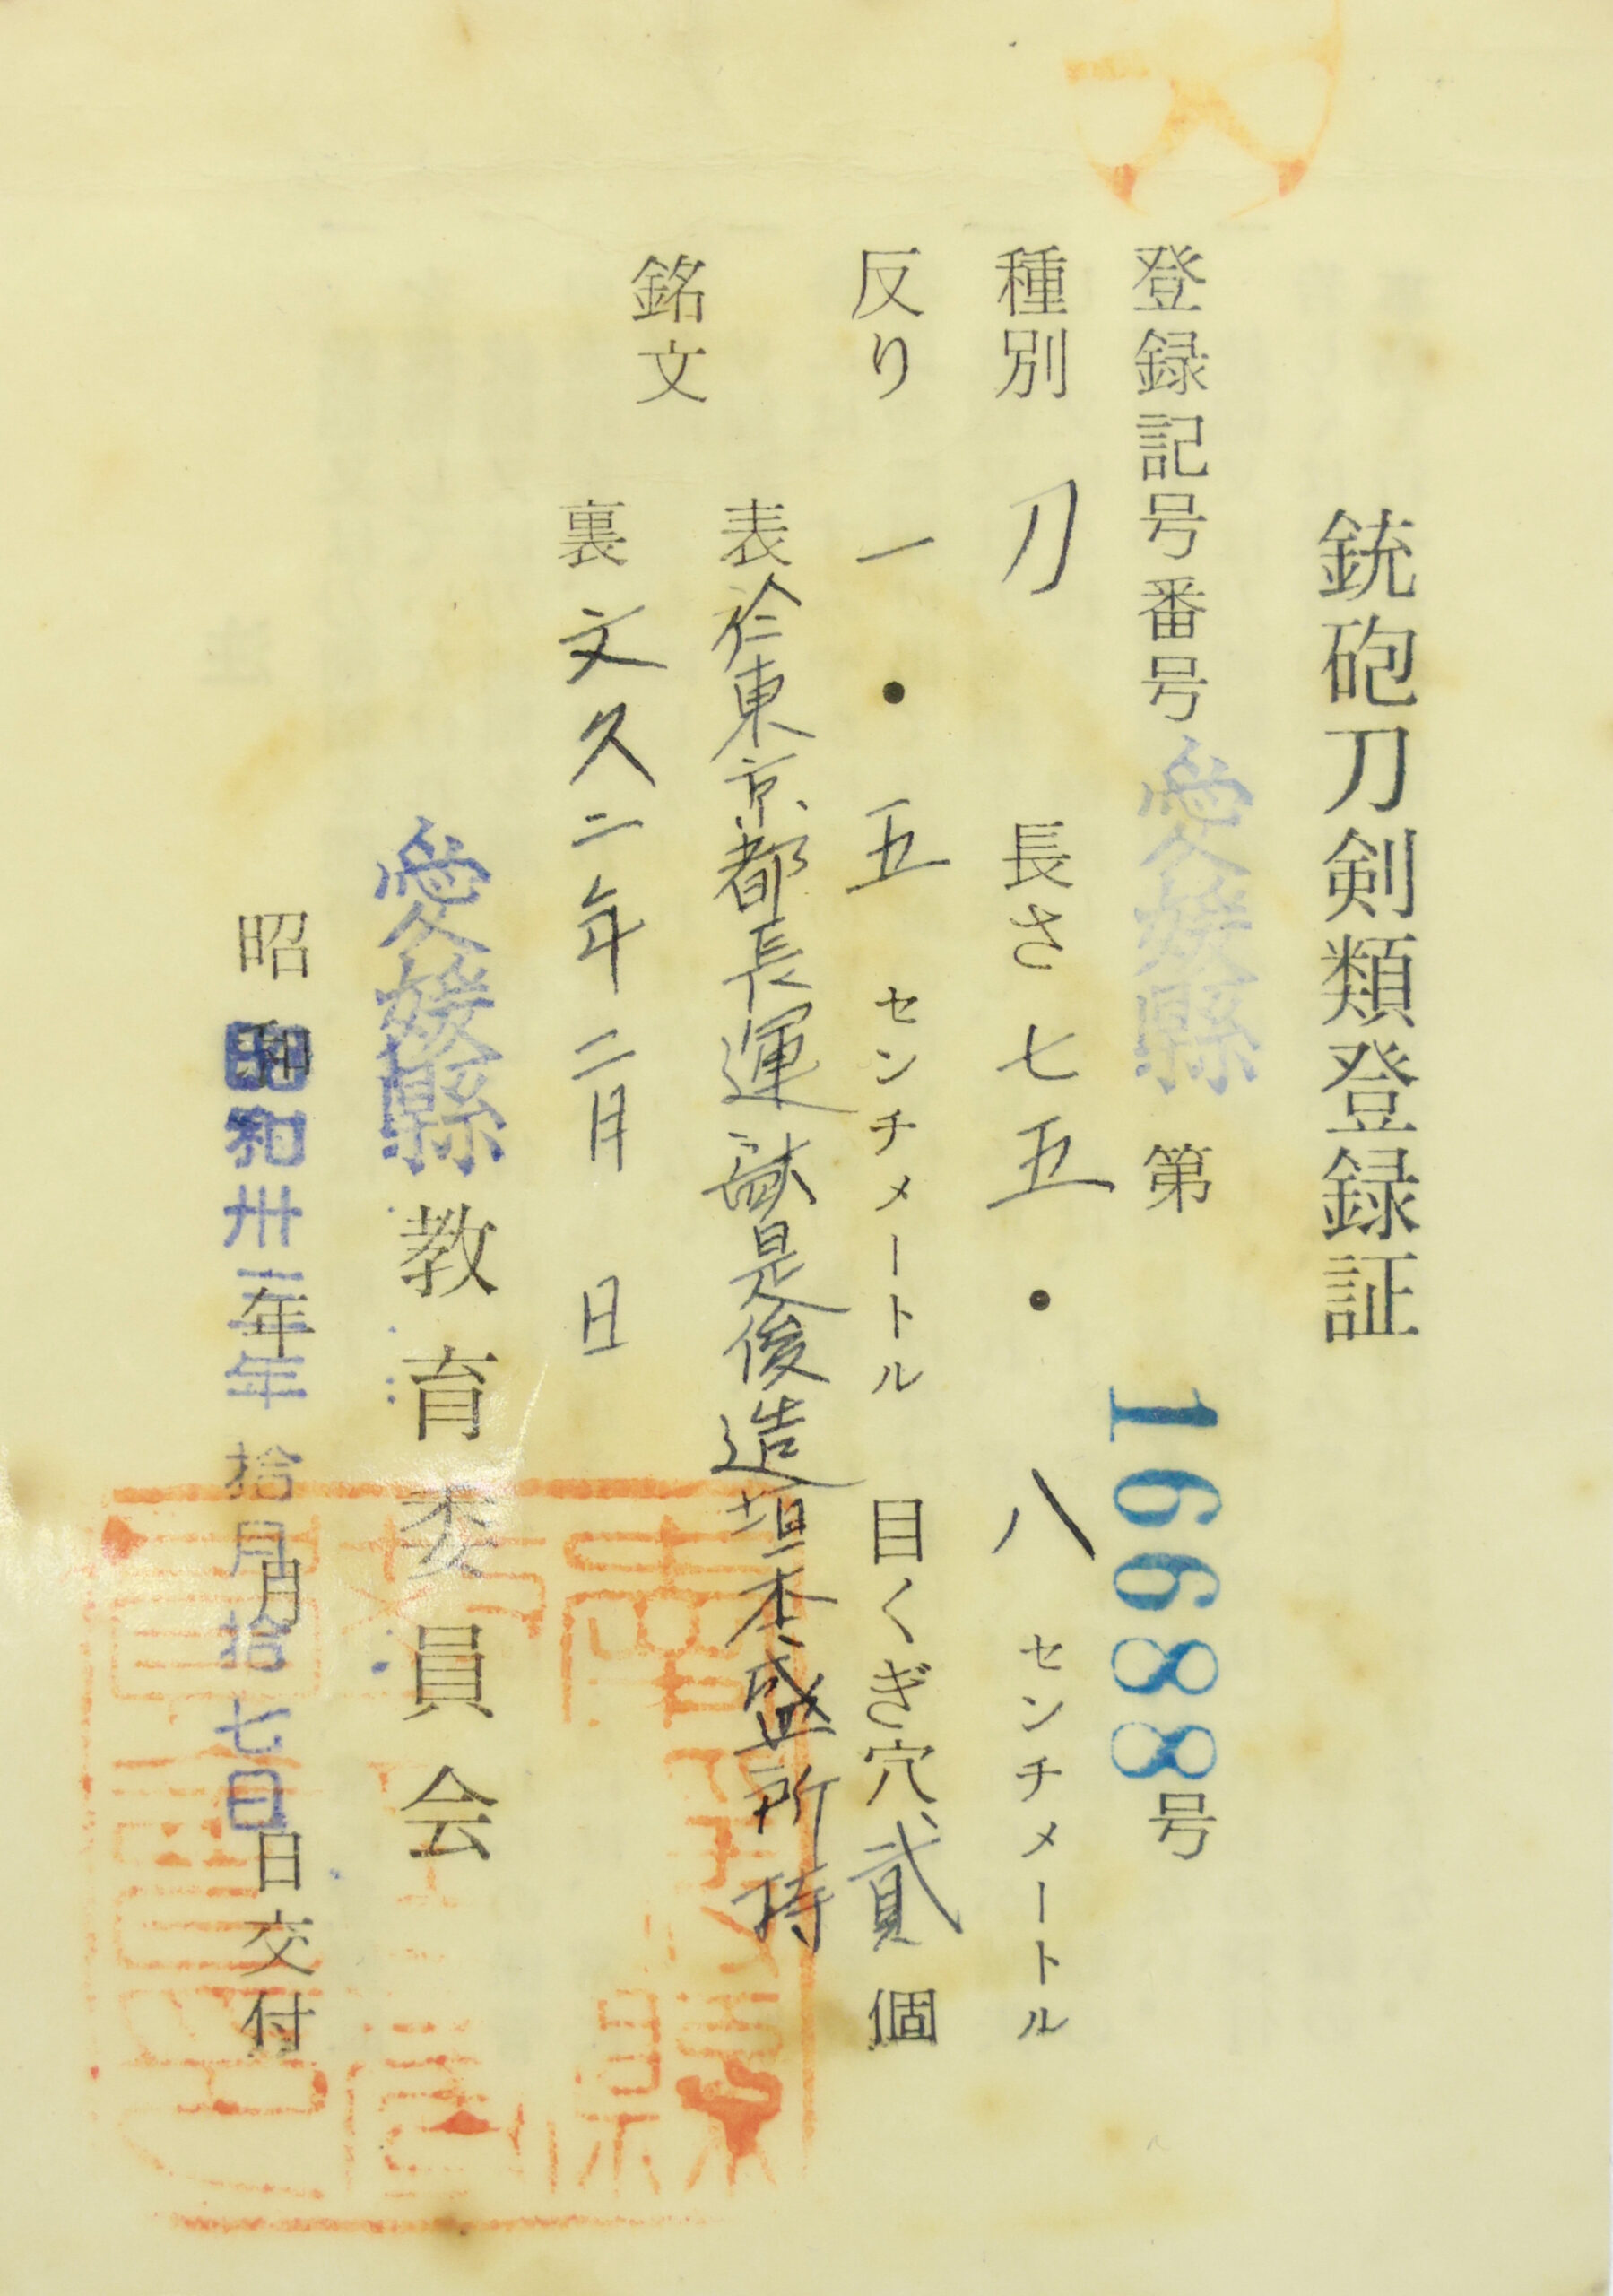 銃砲刀剣類登録証
登録記号番号 愛媛縣 第 16688号
種別 刀 長さ 七五・八 センチメートル
反り 一・五 センチメートル 目くぎ穴 貳 個
銘文
表 於東京都長運 是俊造 本盛所持
裏 文久二年二月 日
愛媛縣教育委員会
昭和 年 月 日交付
昭和卅二年拾月拾七日